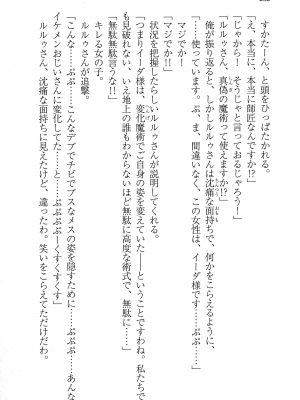 すかたーん、と頭をひっぱたかれる。
「え、本当に、本当に師匠なんですか!?」
「じゃから! そうじゃと言っておるじゃろう!」
「ルルゥさん、真偽の魔術って使えますか!?」
俺が振り返ると、しかしルルゥさんは沈痛な面持ちで、何かをこらえるように、
「……使っています。ぷ、ま、間違いなく、この女性は、イーダ様です……ぷぷ……」
「マジでか!」
「マジでか!!」
状況を把握したらしいルルゥさんが説明してくれる。
「つまりイーダ様は、変化魔術でご自身の姿を変えていた――ということですわね。私たちで
も見破れない、いえ地上の誰もわからないほど無駄に高度な術式で、無駄に……」
「無駄無駄言うな!!」
キレる女の子。
ルルゥさんが追撃。
「こんな……ぷぷ……こんなデブでチビでブスなメスの姿を隠すために……ぷぷぷ……あんな
イケメンおじいさんに変化してた……とっ……ぷぷぷーくすくすくす」
ルルゥさん、沈痛な面持ちに見えたけど、違ったわ。笑いをこらえてただけだわ。